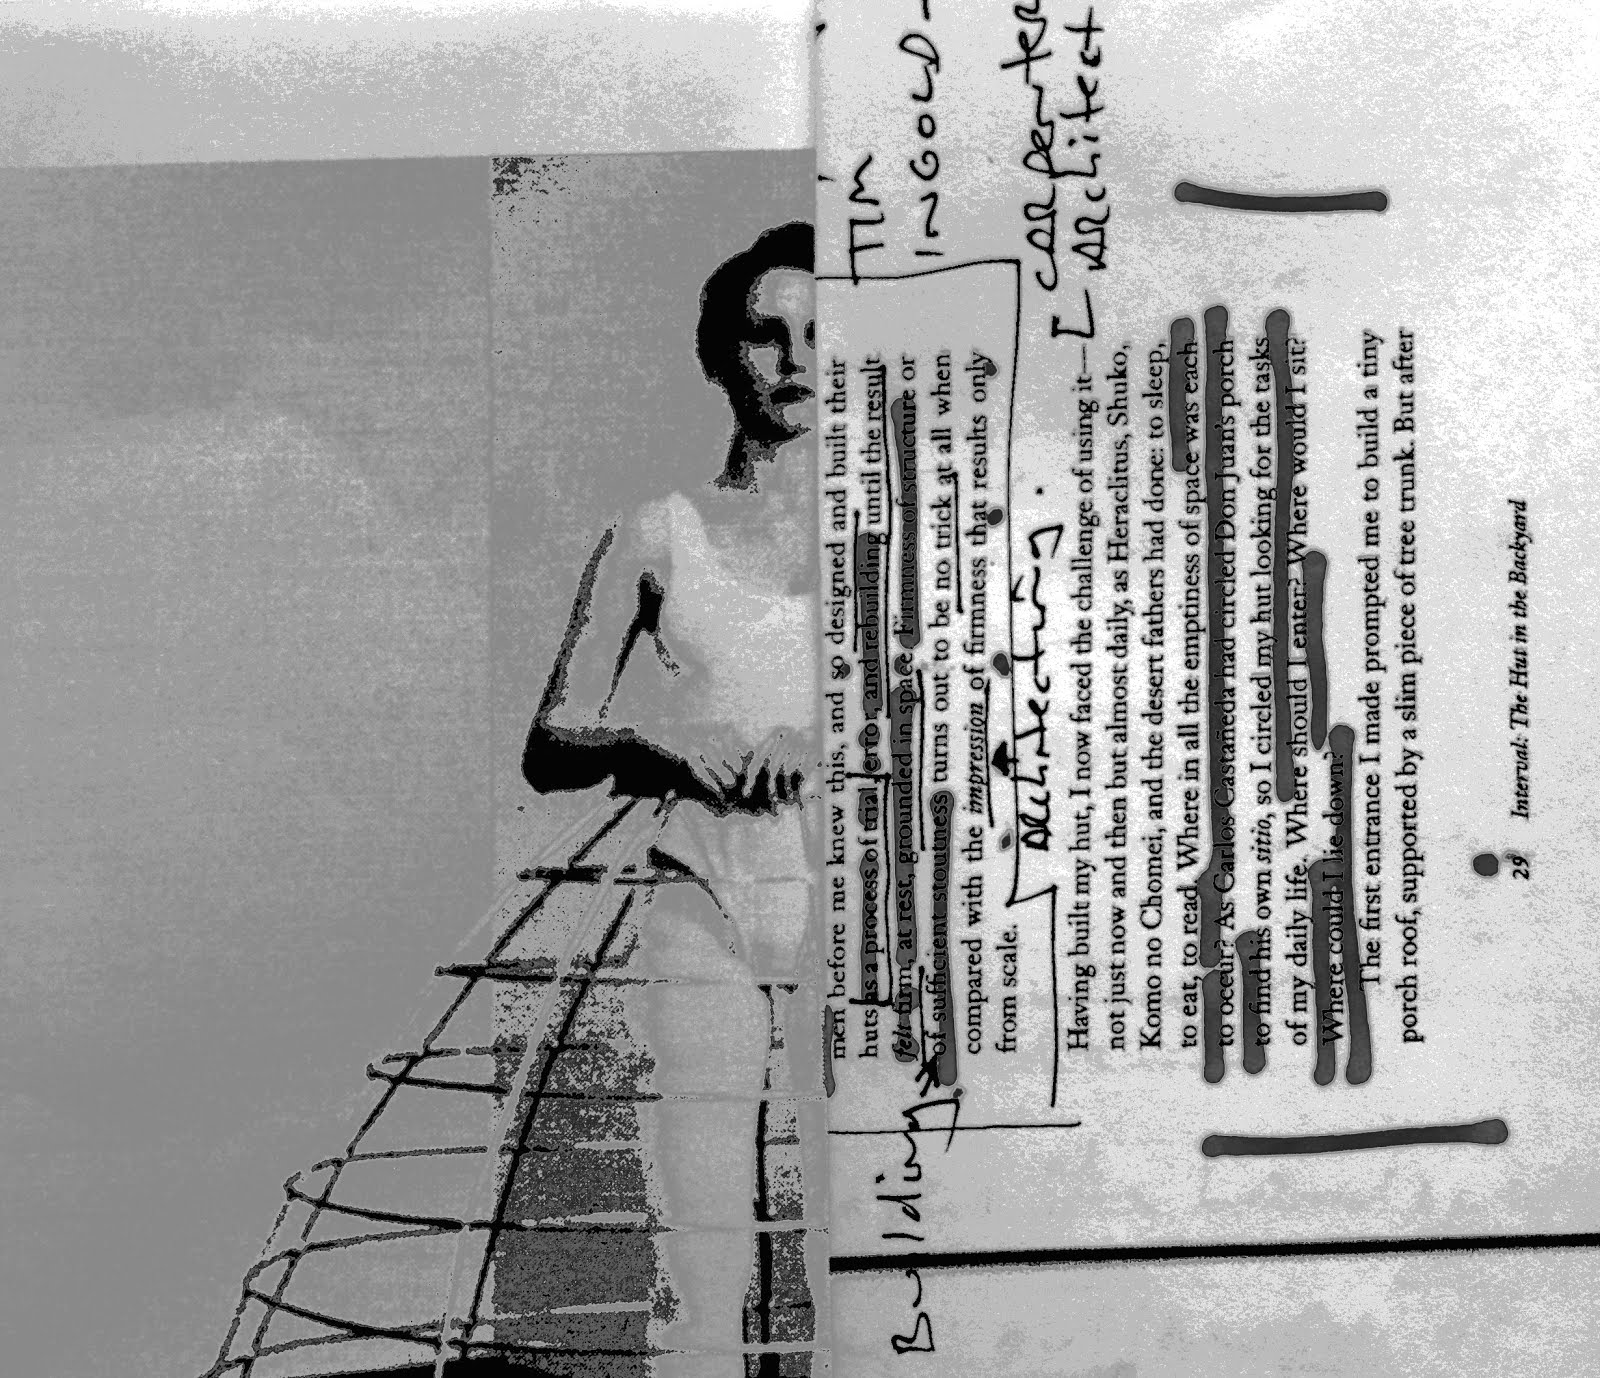 TIM
INGOLD -
CARPENTER
[ ARCHITECT
men before me knew this, and so designed and built their
huts as a process of trial, error, and rebuilding until the result
felt firm, at rest, grounded in space. Firmness of structure or
of sufficient stoutness turns out to be no trick at all when
compared with the impression of firmness that results only
from scale.
Building
Architecturing.
Having built my hut, I now faced the challenge of using it—
not just now and then but almost daily, as Heraclitus, Shuko,
Komo no Chomei, and the desert fathers had done: to sleep,
to eat, to read. Where in all the emptiness of space was each
to occur? As Carlos Castañeda had circled Don Juan's porch
to find his own sitio, so I circled my hut looking for the tasks
of my daily life. Where should I enter? Where would I sit?
Where could I lie down?
The first entrance I made prompted me to build a tiny
porch roof, supported by a slim piece of tree trunk. But after
29 Interval: The Hut in the Backyard